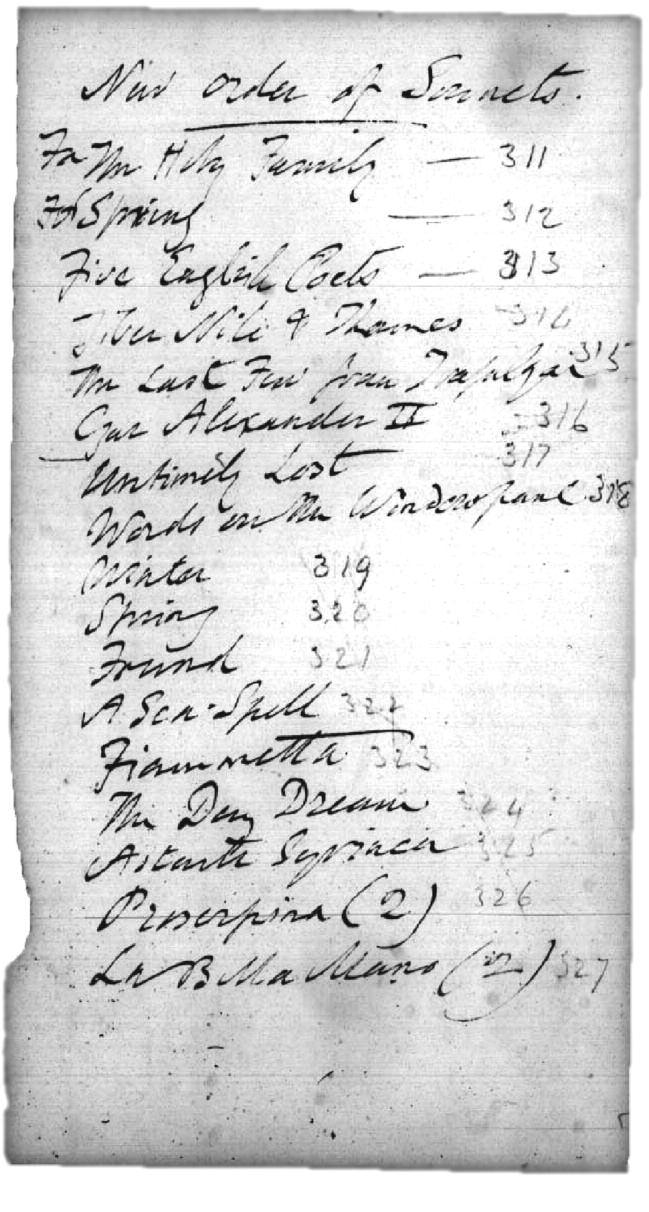 New Order of Sonnets.
For The Holy Family — 311
For Spring — 312
Five English Poets — 313
Tiber Nile & Thames 314
The Last Three from Trafalgar 315
Czar Alexander II 316
Untimely Lost 317
Words on the Window-pane 318
Winter 319
Spring 320
Found 321
A Sea-Spell 322
Fiammetta 323
The Day Dream 324
Astarte Syriaca 325
Proserpina (2) 326
La Bella Mano (2) 327